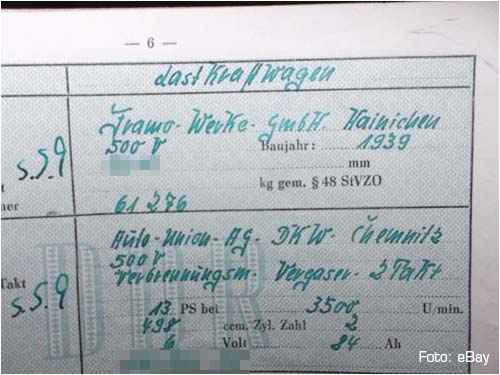 — 6 —
Lastkraftwagen
Framo-Werke-GmbH. Hainichen
500 V Baujahr: 1939
s.S.9 mm
kg gem. § 48 StVZO
61276
Auto-Union-AG. DKW. Chemnitz
500 V
Takt Verbrennungsm. Vergaser-2Takt
s.S.9 13 PS bei 3500 U/min.
498 ccm. Zyl. Zahl 2
6 Volt 84 Ah
Foto: eBay